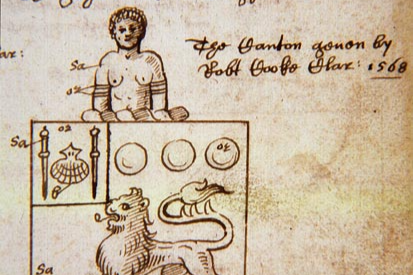 The Canton geven by
Robt Cooke Clar: 1568
ar:
Sa
or
Sa or
or
Sa